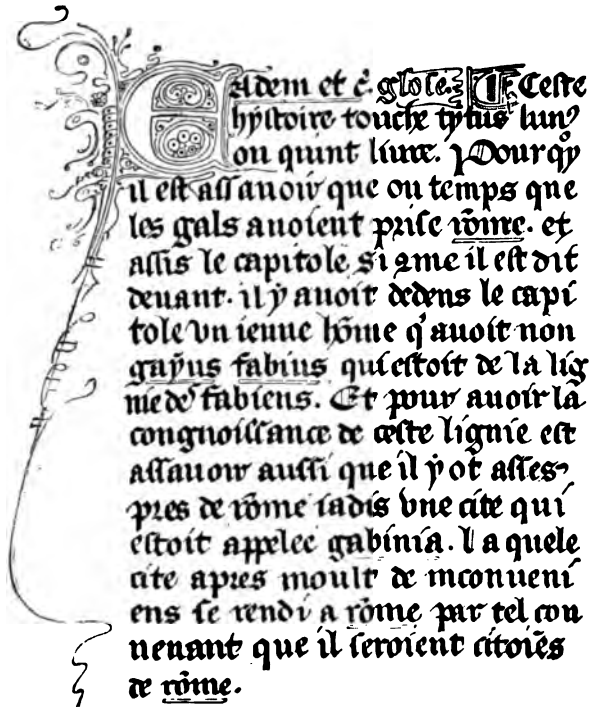 Eadem et c̃. glose. Ceste
hystoire touche tytus liuiꝰ
ou quint liure. Pour qͦy
il est assauoir que ou temps que
les gals auoient prise rõme. et
assis le capitole si ꝯme il est dit
deuant. il ẏ auoit dedens le capi
tole vn ieune hõme q̓ auoit non
gaẏus fabius qui estoit de la lig
nie deˢ fabiens. Et pour auoir la
congnoissance de ceste lignie est
assauoir aussi que il ẏ ot asses
pres de rõme iadis vne cite qui
estoit appelee gabinia. Laquele
cite apres moult de inconueni
ens se rendi a rõme par tel con
uenant que il seroient citoiẽs
de rõme.